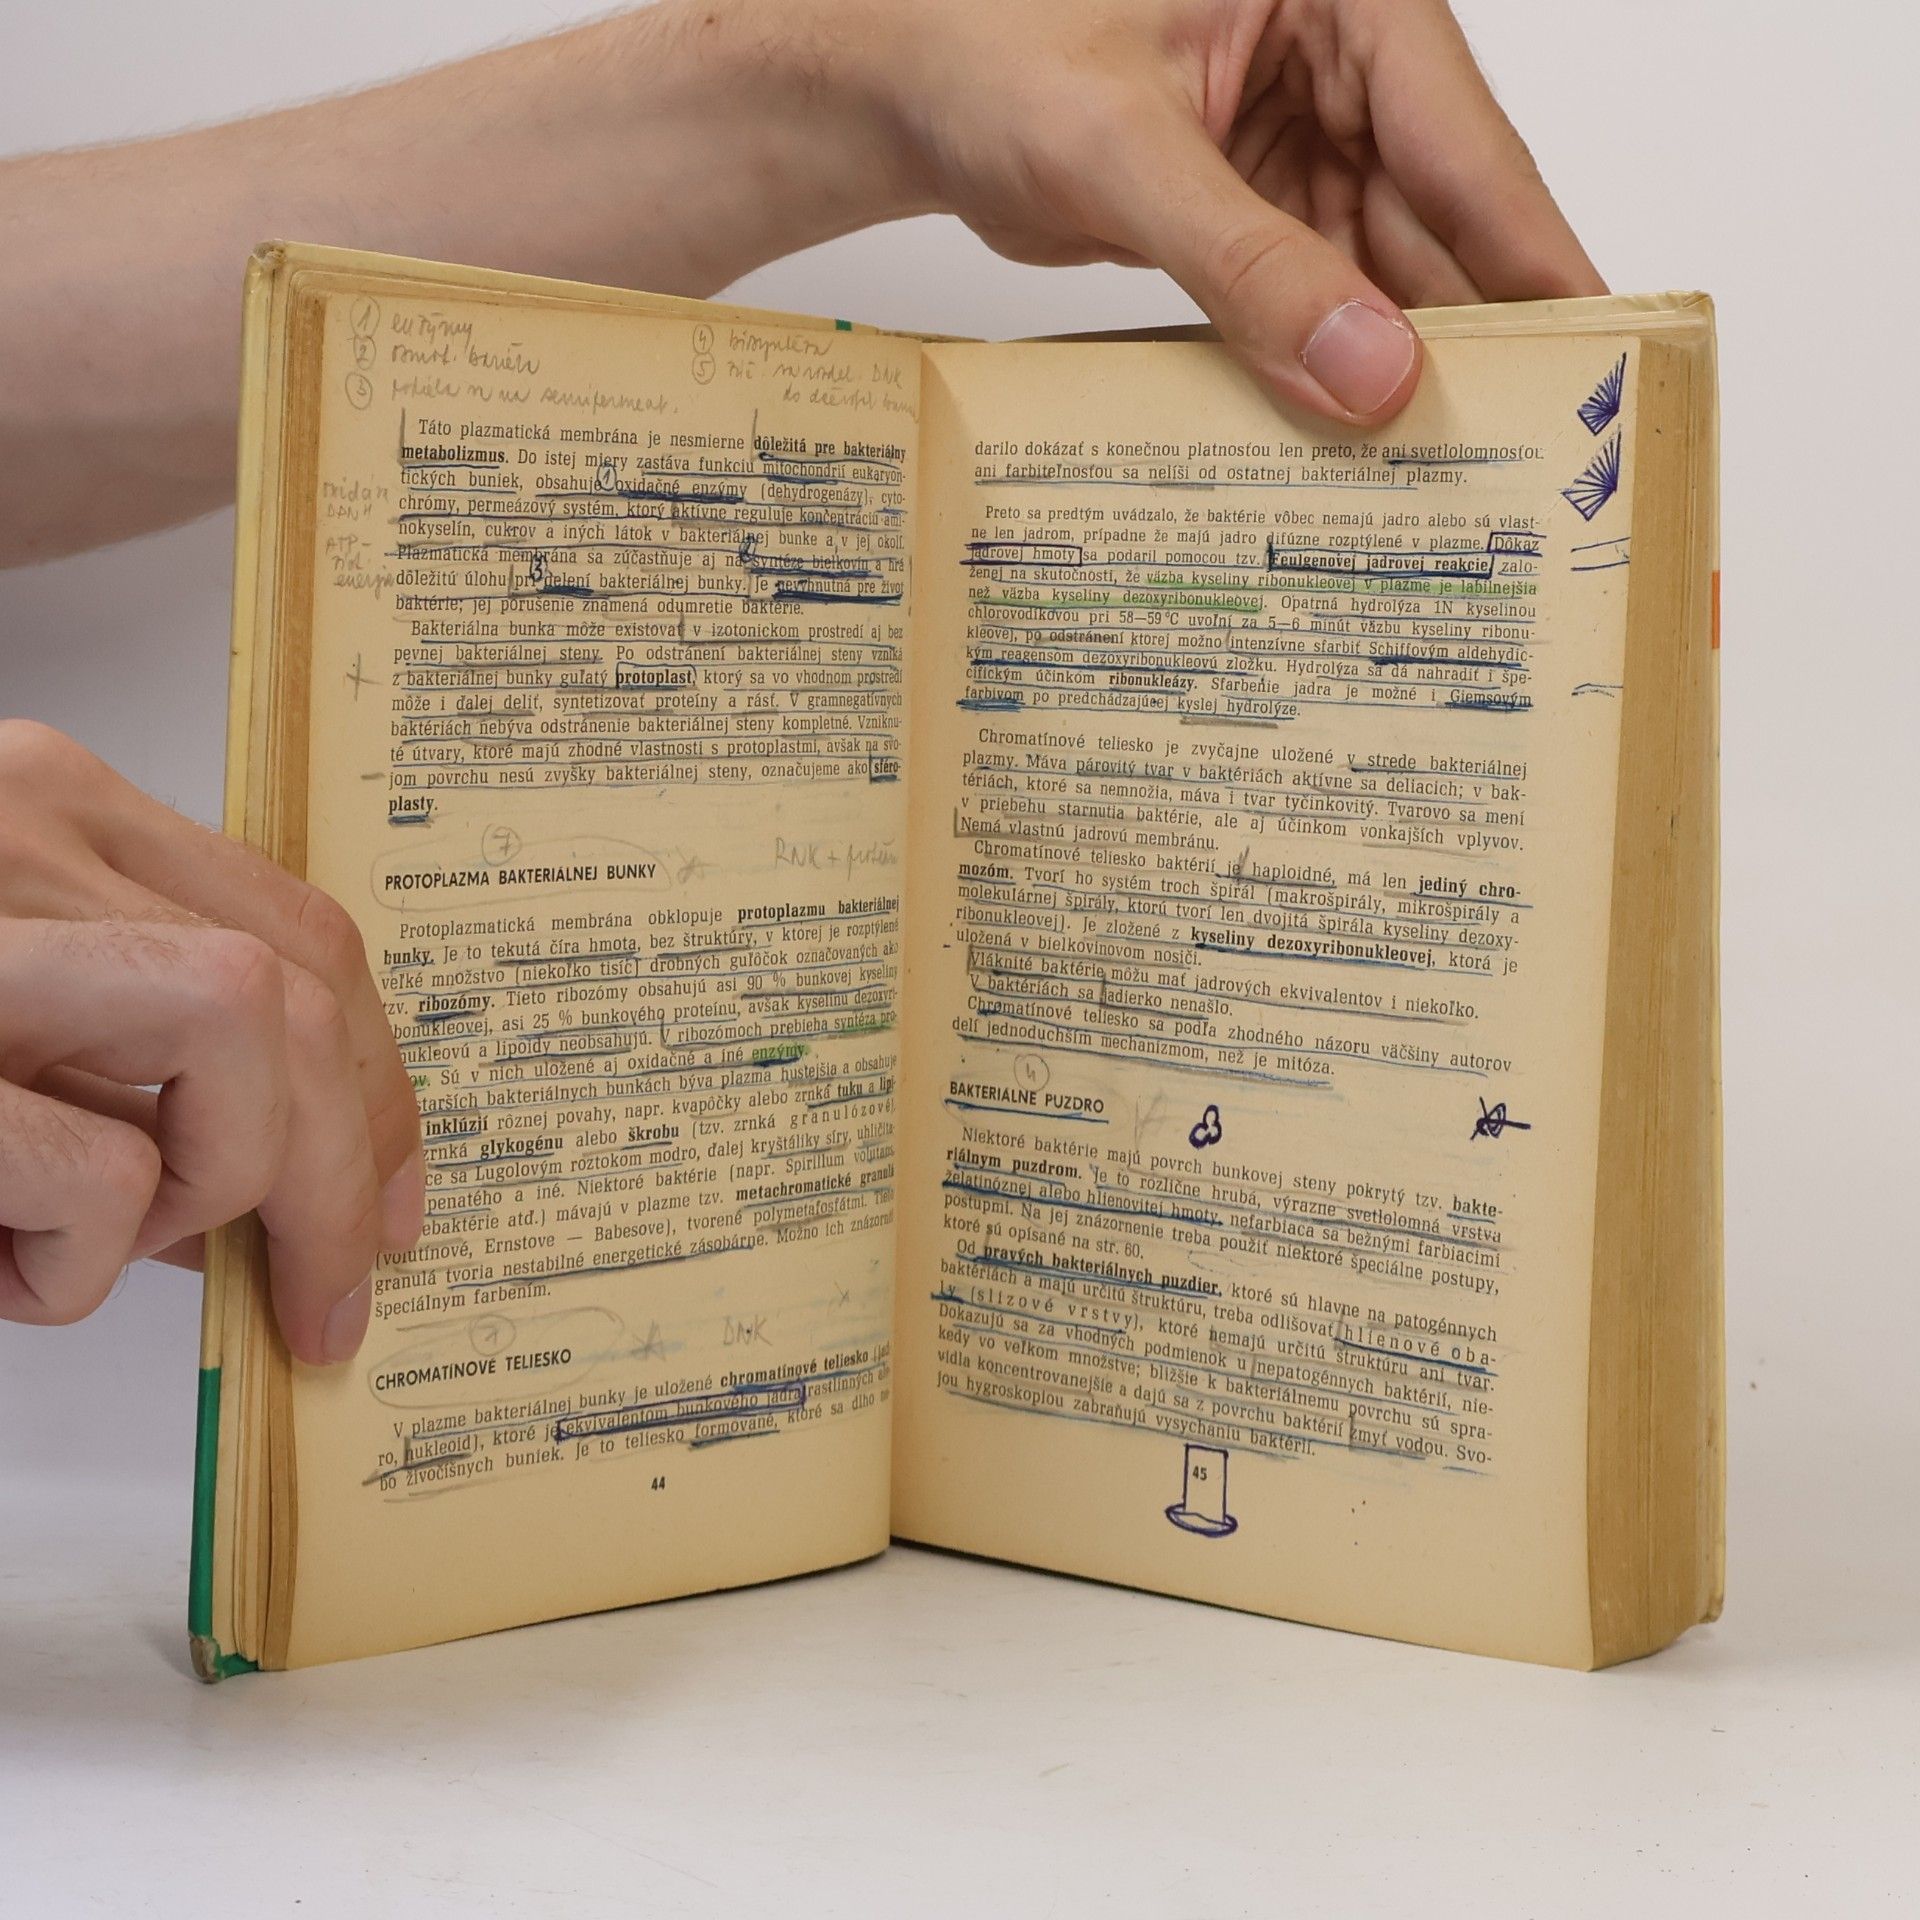 1 enzýmy
2 osmot. bariéra
3 podiela sa na semipermeab.
4 biosyntéza
5 DNK
Táto plazmatická membrána je nesmierne dôležitá pre bakteriálny
metabolizmus. Do istej miery zastáva funkciu mitochondrií eukaryon-
tických buniek, obsahuje oxidačné enzýmy (dehydrogenázy), cyto-
chrómy, permeázový systém, ktorý aktívne reguluje koncentráciu ami-
nokyselín, cukrov a iných látok v bakteriálnej bunke a v jej okolí.
Plazmatická membrána sa zúčastňuje aj na syntéze bielkovín a hrá
dôležitú úlohu pri delení bakteriálnej bunky. Je nevyhnutná pre život
baktérie; jej porušenie znamená odumretie baktérie.
Bakteriálna bunka môže existovať v izotonickom prostredí aj bez
pevnej bakteriálnej steny. Po odstránení bakteriálnej steny vzniká
z bakteriálnej bunky guľatý protoplast, ktorý sa vo vhodnom prostredí
môže i ďalej deliť, syntetizovať proteíny a rásť. V gramnegatívnych
baktériách nebýva odstránenie bakteriálnej steny kompletné. Vzniknu-
té útvary, ktoré majú zhodné vlastnosti s protoplastmi, avšak na svo-
jom povrchu nesú zvyšky bakteriálnej steny, označujeme ako sféro-
plasty.
7
RNK + proteín
PROTOPLAZMA BAKTERIÁLNEJ BUNKY
Protoplazmatická membrána obklopuje protoplazmu bakteriálnej
bunky. Je to tekutá číra hmota, bez štruktúry, v ktorej je rozptýlené
veľké množstvo (niekoľko tisíc) drobných guľôčok označovaných ako
tzv. ribozómy. Tieto ribozómy obsahujú asi 90 % bunkovej kyseliny
bonukleovej, asi 25 % bunkového proteínu, avšak kyselinu dezoxyri-
nukleovú a lipoidy neobsahujú. V ribozómoch prebieha syntéza pro-
ov. Sú v nich uložené aj oxidačné a iné enzýmy.
starších bakteriálnych bunkách býva plazma hustejšia a obsahuje
inklúzií rôznej povahy, napr. kvapôčky alebo zrnká tuku a lipi
zrnká glykogénu alebo škrobu (tzv. zrnká granulózové)
ce sa Lugolovým roztokom modro, ďalej kryštáliky síry, uhličita
penatého a iné. Niektoré baktérie (napr. Spirillum volutans
ebaktérie atď.) mávajú v plazme tzv. metachromatické granulá
(volutínové, Ernstove — Babesove), tvorené polymetafosfátmi. Tieto
granulá tvoria nestabilné energetické zásobárne. Možno ich znázorniť
špeciálnym farbením.
7
DNK
CHROMATÍNOVÉ TELIESKO
V plazme bakteriálnej bunky je uložené chromatínové teliesko (jad
ro, nukleoid), ktoré je ekvivalentom bunkového jadra rastlinných ale
bo živočíšnych buniek. Je to teliesko formované, ktoré sa dlho ne
44
darilo dokázať s konečnou platnosťou len preto, že ani svetlolomnosťou
ani farbiteľnosťou sa nelíši od ostatnej bakteriálnej plazmy.
Preto sa predtým uvádzalo, že baktérie vôbec nemajú jadro alebo sú vlast-
ne len jadrom, prípadne že majú jadro difúzne rozptýlené v plazme. Dôkaz
jadrovej hmoty sa podaril pomocou tzv. Feulgenovej jadrovej reakcie, zalo-
ženej na skutočnosti, že väzba kyseliny ribonukleovej v plazme je labilnejšia
než väzba kyseliny dezoxyribonukleovej. Opatrná hydrolýza 1N kyselinou
chlorovodíkovou pri 58—59 °C uvoľní za 5—6 minút väzbu kyseliny ribonu-
kleovej, po odstránení ktorej možno intenzívne sfarbiť Schiffovým aldehydic-
kým reagensom dezoxyribonukleovú zložku. Hydrolýza sa dá nahradiť i špe-
cifickým účinkom ribonukleázy. Sfarbenie jadra je možné i Giemsovým
farbivom po predchádzajúcej kyslej hydrolýze.
Chromatínové teliesko je zvyčajne uložené v strede bakteriálnej
plazmy. Máva párovitý tvar v baktériách aktívne sa deliacich; v bak-
tériách, ktoré sa nemnožia, máva i tvar tyčinkovitý. Tvarovo sa mení
v priebehu starnutia baktérie, ale aj účinkom vonkajších vplyvov.
Nemá vlastnú jadrovú membránu.
Chromatínové teliesko baktérií je haploidné, má len jediný chro-
mozóm. Tvorí ho systém troch špirál (makrošpirály, mikrošpirály a
molekulárnej špirály, ktorú tvorí len dvojitá špirála kyseliny dezoxy-
ribonukleovej). Je zložené z kyseliny dezoxyribonukleovej, ktorá je
uložená v bielkovinovom nosiči.
Vláknité baktérie môžu mať jadrových ekvivalentov i niekoľko.
V baktériách sa jadierko nenašlo.
Chromatínové teliesko sa podľa zhodného názoru väčšiny autorov
delí jednoduchším mechanizmom, než je mitóza.
4
BAKTERIÁLNE PUZDRO
Niektoré baktérie majú povrch bunkovej steny pokrytý tzv. bakte-
riálnym puzdrom. Je to rozlične hrubá, výrazne svetlolomná vrstva
želatinóznej alebo hlienovitej hmoty, nefarbiaca sa bežnými farbiacimi
postupmi. Na jej znázornenie treba použiť niektoré špeciálne postupy,
ktoré sú opísané na str. 60.
Od pravých bakteriálnych puzdier, ktoré sú hlavne na patogénnych
baktériách a majú určitú štruktúru, treba odlišovať hlienové oba-
ly (slizové vrstvy), ktoré nemajú určitú štruktúru ani tvar.
Dokazujú sa za vhodných podmienok u nepatogénnych baktérií, nie-
kedy vo veľkom množstve; bližšie k bakteriálnemu povrchu sú spra-
vidla koncentrovanejšie a dajú sa z povrchu baktérií zmyť vodou. Svo-
jou hygroskopiou zabraňujú vysychaniu baktérií.
45